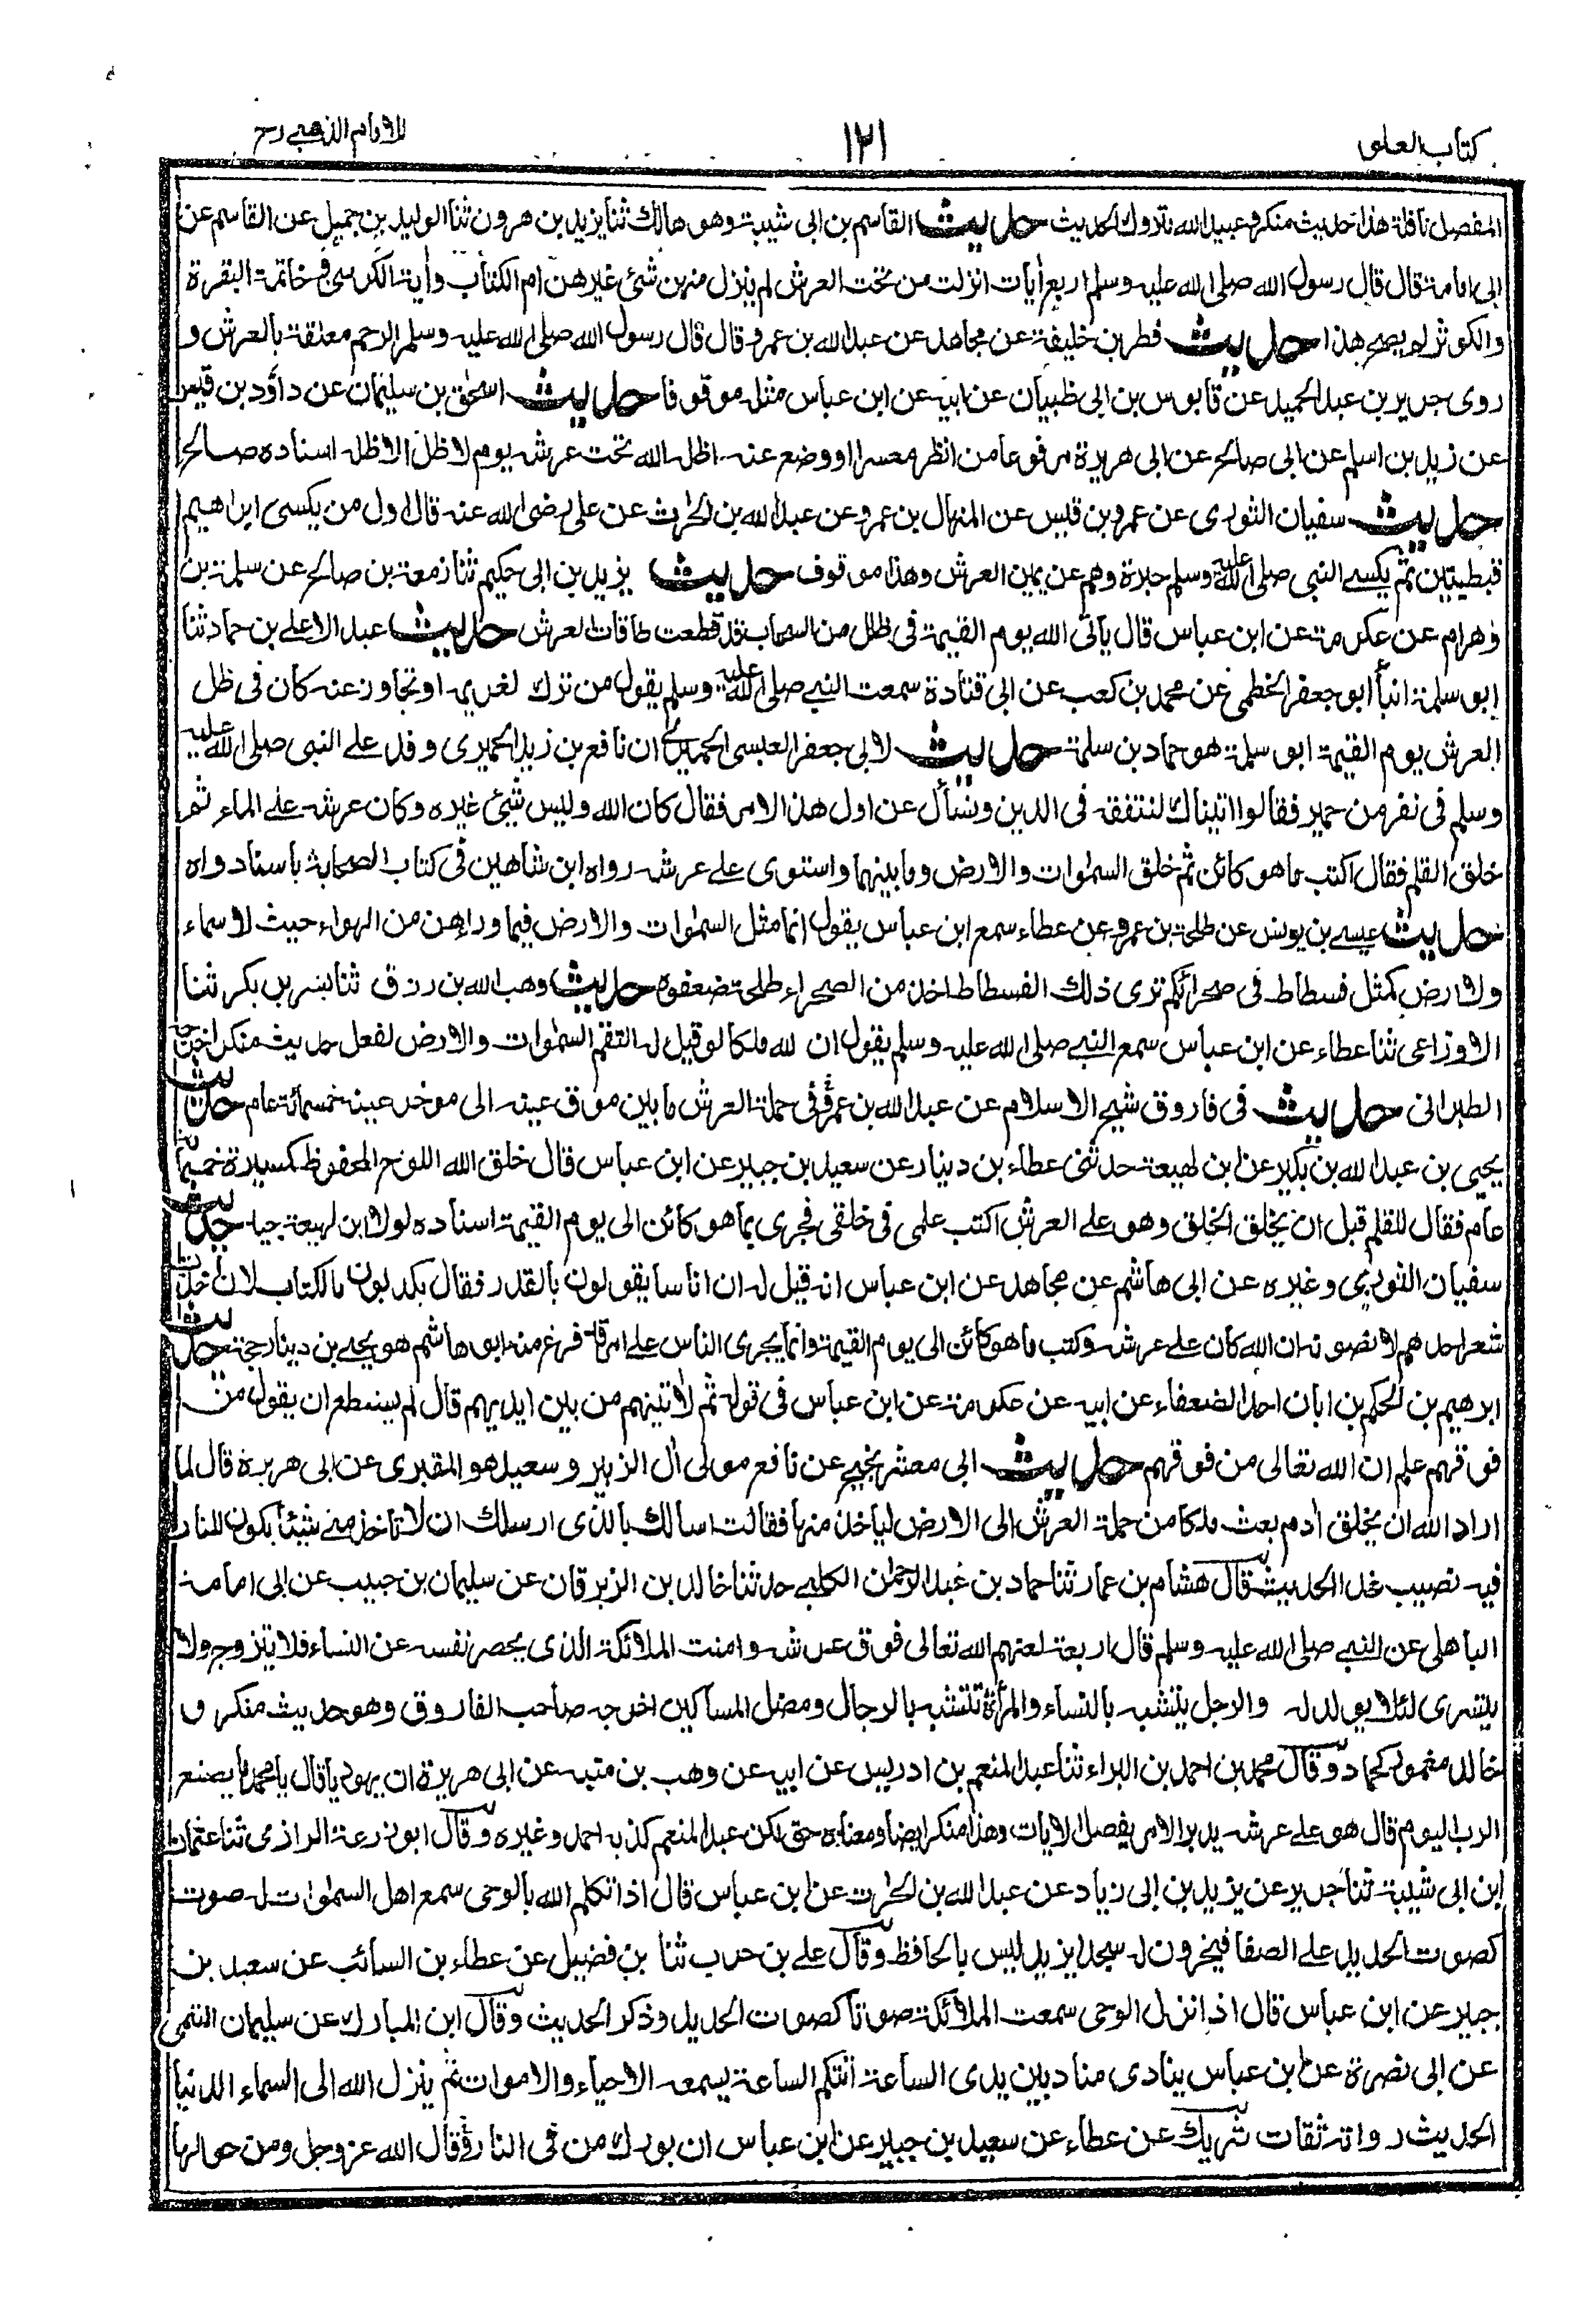 كتاب العلو
١٢١
للامام الذهبي رح
المفصل نافلة هذا حديث منكر وعبيد الله متروك الحديث حديث القاسم بن ابى شيبة وهو هالك ثنا يزيد بن هرون ثنا الوليد بن جميل عن القاسم عن
ابى امامة قال قال رسول الله صلى الله عليه وسلم اربع أيات انزلت من تحت العرش لم ينزل منهن شئ غيرهن ام الكتاب وأية الكرسى وخاتمة البقرة
والكوثر لم يصح هذا حديث فطر بن خليفة عن مجاهد عن عبد الله بن عمرو قال قال رسول الله صلى الله عليه وسلم الرحم معلقة بالعرش و
روى جرير بن عبد الحميد عن قابوس بن ابى ظبيان عن ابيه عن ابن عباس مثله موقوفا حديث اسحق بن سليمان عن داؤد بن قيس
عن زيد بن اسلم عن ابى صالح عن ابى هريرة مرفوعا من انظر معسرا او وضع عنه اظله الله تحت عرشه يوم لا ظل الا ظله اسناده صالح
حديث سفيان الثورى عن عمرو بن قيس عن المنهال بن عمرو عن عبد الله بن الحرث عن على رضى الله عنه قال اول من يكسى ابراهيم
قبطيتين ثم يكسے النبى صلى الله عليه وسلم حبرة وهم عن يمين العرش وهذا موقوف حديث يزيد بن ابى حكيم ثنا زمعة بن صالح عن سلمة بن
وهرام عن عكرمة عن ابن عباس قال يأتى الله يوم القيمة فى ظلل من السحاب قد قطعت طاقات العرش حديث عبد الاعلے بن حماد ثنا
ابو سلمة انبأ ابو جعفر الخطمى عن محمد بن كعب عن ابى قتادة سمعت النبے صلى الله عليه وسلم يقول من ترك لغريمه او تجاوز عنه كان فى ظل
العرش يوم القيمة ابو سلمة هو حماد بن سلمة حديث لابى جعفر العبسى الحميرى ان نافع بن زيد الحميرى وفد على النبى صلى الله عليه
وسلم فى نفر من حمير فقالوا اتيناك لنتفقه فى الدين ونسأل عن اول هذا الامر فقال كان الله وليس شيئ غيره وكان عرشه على الماء ثم
خلق القلم فقال اكتب ما هو كائن ثم خلق السموات والارض وما بينهما واستوى على عرشه رواه ابن شاهين فى كتاب الصحابة باسناد واه
حديث عيسے بن يونس عن طلحة بن عمرو عن عطاء سمع ابن عباس يقول انما مثل السموات والارض فيما وراهن من الهواء حيث لا سماء
ولا ارض كمثل فسطاط فى صحرائكم ترى ذلك الفسطاط اخذ من الصحراء طلحة ضعفوه حديث وهب الله بن رزق ثنا بشر بن بكر ثنا
الاوزاعى ثنا عطاء عن ابن عباس سمع النبے صلى الله عليه وسلم يقول ان لله ملكا لو قيل له التقم السموات والارض لفعل حديث منكر اخرجه
الطبرانى حديث فى فاروق شيخ الاسلام عن عبد الله بن عمرو فى حملة العرش ما بين موق عينه الى موخر عينه خمسمائة عام حديث
يحيى بن عبد الله بن بكير عن ابن لهيعة حدثنى عطاء بن دينار عن سعيد بن جبير عن ابن عباس قال خلق الله اللوح المحفوظ كمسيرة خمسمائة
عام فقال للقلم قبل ان يخلق الخلق وهو على العرش اكتب علمى فى خلقى فجرى بما هو كائن الى يوم القيمة اسناده لولا ابن لهيعة جيد حديث
سفيان الثورى وغيره عن ابى هاشم عن مجاهد عن ابن عباس انه قيل له ان اناسا يقولون بالقدر فقال يكذبون بالكتاب لان اخذت
شعر احدهم لا نضونه ان الله كان على عرشه وكتب ما هو كائن الى يوم القيمة وانما يجرى الناس على امر قد فرغ منه ابو هاشم هو يحيے بن دينار حجة حديث
ابرهيم بن الحكم بن ابان احد الضعفاء عن ابيه عن عكرمة عن ابن عباس فى قوله ثم لاتينهم من بين ايديهم قال لم يستطع ان يقول من
فوقهم علم ان الله تعالى من فوقهم حديث ابى معشر نجيح عن نافع مولى أل الزبير وسعيد هو المقبرى عن ابى هريرة قال لما
اراد الله ان يخلق أدم بعث ملكا من حملة العرش الى الارض ليأخذ منها فقالت اسالك بالذى ارسلك ان لا تأخذ منے شيئا يكون للنار
فيه نصيب غدا الحديث قال هشام بن عمار ثنا حماد بن عبد الرحمن الكلبے حدثنا خالد بن الزبرقان عن سليمان بن حبيب عن ابى امامة
الباهلى عن النبے صلى الله عليه وسلم قال اربعة لعنهم الله تعالى فوق عرشه وامنت الملائكة الذى يحصر نفسه عن النساء فلا يتزوج ولا
يتسرى لئلا يولد له والرجل يتشبه بالنساء والمرأة تتشبه بالرجال ومضل المساكين اخرجه صاحب الفاروق وهو حديث منكر و
خالد مغمور كحماد وقال محمد بن احمد بن البراء ثنا عبد المنعم بن ادريس عن ابيه عن وهب بن منبه عن ابى هريرة ان يهوديا قال يا محمد ما يصنع
الرب اليوم قال هو على عرشه يدبر الامر يفصل الايات وهذا منكر ايضا ومعناه حق لكن عبد المنعم كذبه احمد وغيره وقال ابو زرعة الرازى ثنا عثمان
ابن ابى شيبة ثنا جرير عن يزيد بن ابى زياد عن عبد الله بن الحرث عن ابن عباس قال اذا تكلم الله بالوحى سمع اهل السموات له صوت
كصوت الحديد على الصفا فيخرون له سجدا يزيد ليس بالحافظ وقال على بن حرب ثنا بن فضيل عن عطاء بن السائب عن سعيد بن
جبير عن ابن عباس قال اذا نزل الوحى سمعت الملائكة صوتا كصوت الحديد وذكر الحديث وقال ابن المبارك عن سليمان التيمى
عن ابى نضرة عن ابن عباس ينادى مناد بين يدى الساعة اتتكم الساعة يسمعه الاحياء والاموات ثم ينزل الله الى السماء الدنيا
الحديث رواته ثقات شريك عن عطاء عن سعيد بن جبير عن ابن عباس ان بورك من فى النار قال الله عز وجل ومن حولها